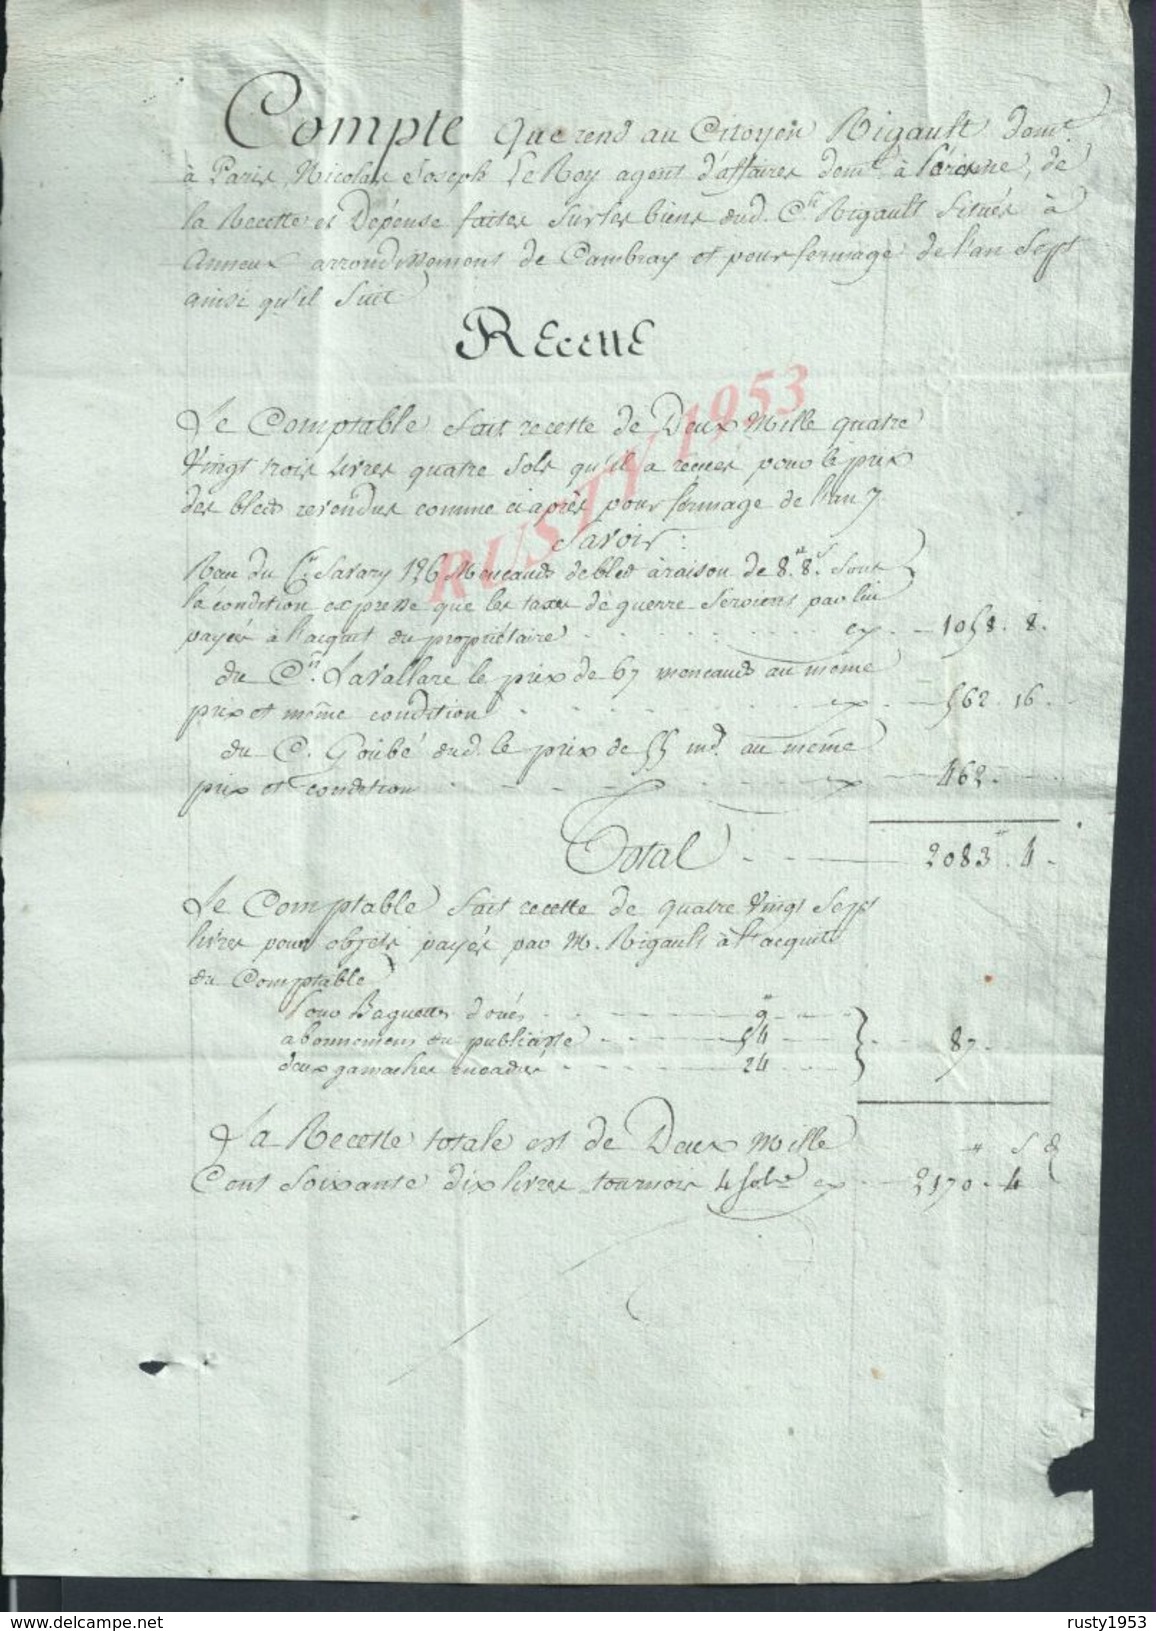 Compte que rend au Citoyen Rigault domt.
à Paris, Nicolas Joseph Le Roy agent d'affaires domt. à Péronne, de
la Recette et Dépense faites sur les biens dud. Cit. Rigault situés à
Anneux arrondissement de Cambray et pour fermage de l'an Sept
ainsi qu'il suit
Recette
Le Comptable fait recette de Deux Mille quatre
Vingt trois livres quatre sols qu'il a pour le prix
des bleds revendus comme ci après pour fermage de l'an 7
Savoir:
du Cn. Savary 126 Mencauds de bled à raison de 8.# 8.s sous
la condition expresse que les taxes de guerre seroient par lui
payées à l'acquit du propriétaire cy 1058. 8.
du Cn. Lavallare le prix de 67 mencauds au même
prix et même condition cy 562. 16.
du C. Goubé dud. le prix de 55 md. au même
prix et condition cy 462.
Total 2083.# 4
Le Comptable fait recette de quatre Vingt Sept
livres pour objets payés par M. Rigault à l'acquit
du Comptable
Pour Baguettes dorées 9#
abonnement du publiciste 54
deux gamaches encadrés 24
87
La Recette totale est de Deux Mille
Cent Soixante dix livres tournois 4 sols cy 2170. 4
RUSTY 1953
www.delcampe.net
rusty1953